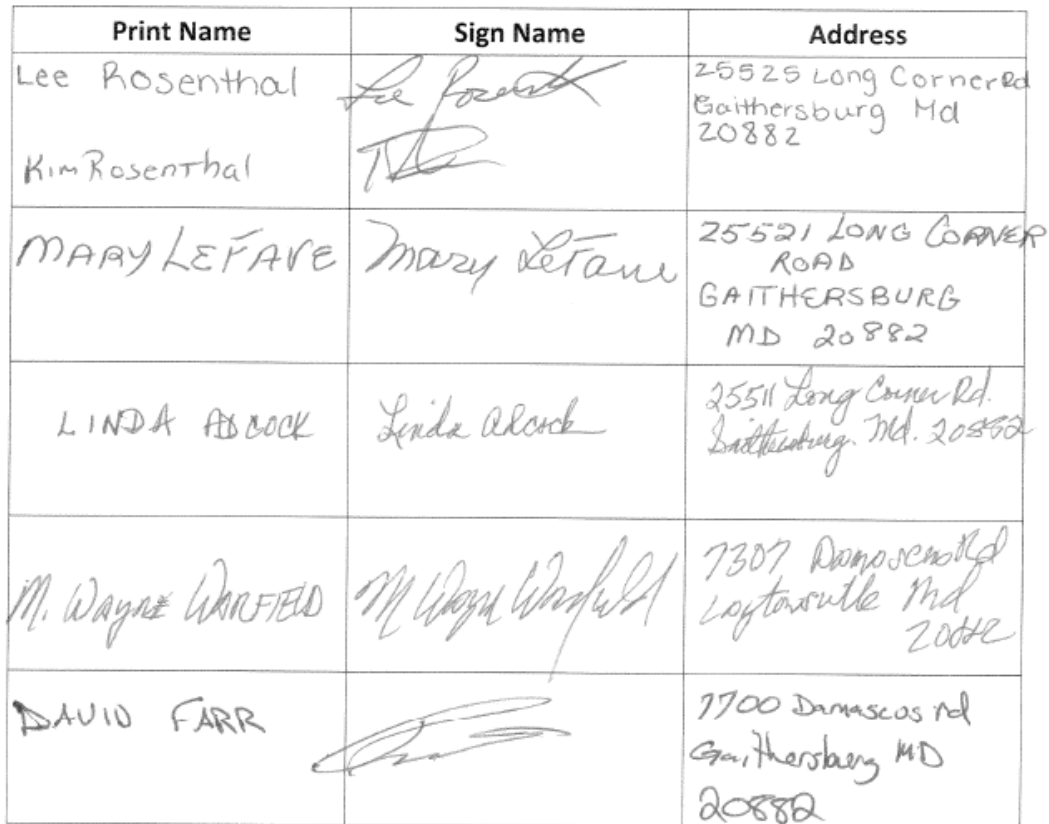 Print Name Sign Name Address
Lee Rosenthal
Lee Rosenthal
25525 Long Corner Rd
Gaithersburg Md
20882
Kim Rosenthal
MARY LEFAVE
Mary LeFave
25521 LONG CORNER
ROAD
GAITHERSBURG
MD 20882
LINDA ADCOCK
Linda Adcock
25511 Long Corner Rd.
Gaithersburg. Md. 20882
M. Wayne WARFIELD
M Wayne Warfield
7307 Damascus Rd
Laytonsville Md
20882
DAVID FARR
7700 Damascos rd
Gaithersburg MD
20882